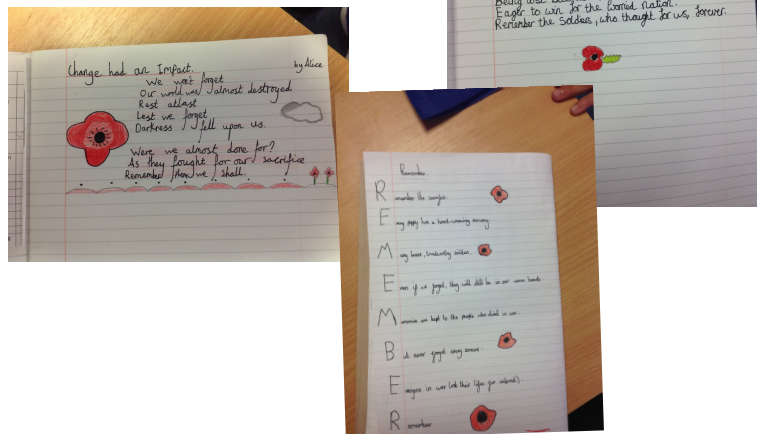 Change had an Impact.
by Alice
We won't forget
Our world was almost destroyed
Rest atlast
Lest we forget
Darkness fell upon us.
Were we almost done for?
As they fought for our sacrifice
Remember them we shall.
Eager to win for the worried nation.
Remember the Soldiers, who thought for us, forever.
Remember
Remember the sacrifice.
Every poppy has a heart-warming memory.
Many brave, trustworthy soldiers.
Even if we forget, they will still be in our warm hearts.
Memories are kept to the people who died in war.
But never forget every
Everyone in war lost their
Remember